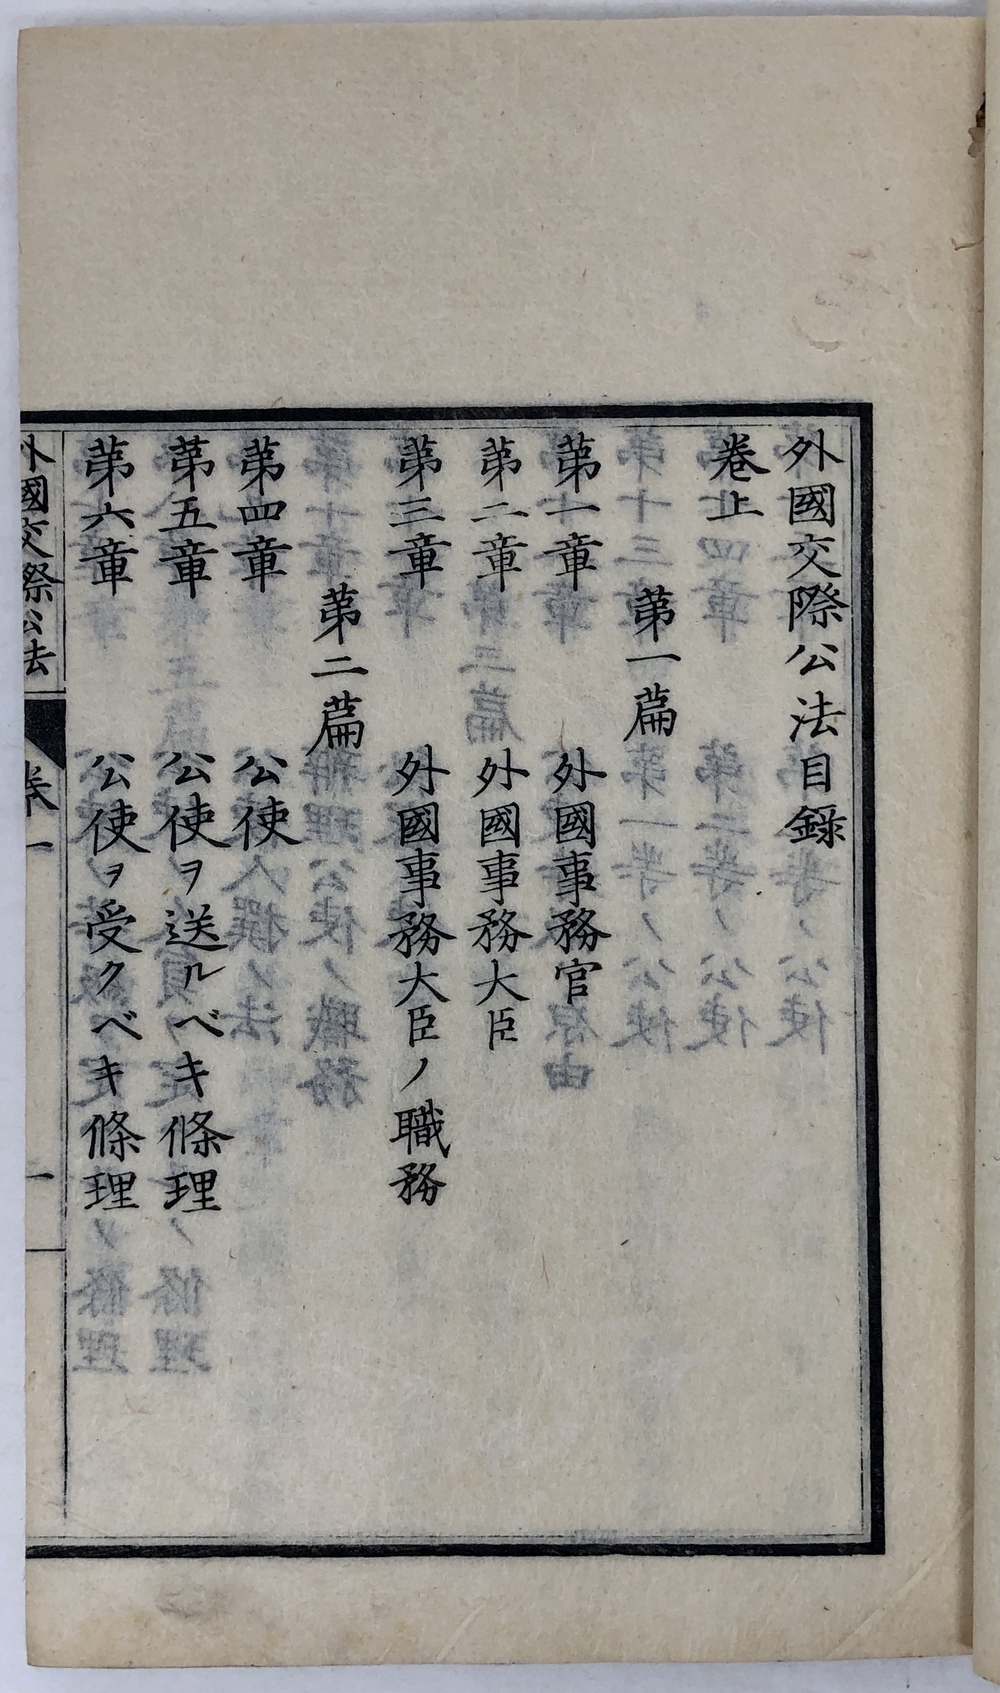 外國交際公法目錄
卷上
第一篇
第一章 外國事務官
第二章 外國事務大臣
第三章 外國事務大臣ノ職務
第二篇
第四章 公使
第五章 公使ヲ送ルベキ條理
第六章 公使ヲ受クベキ條理
外國交際公法 卷一 一